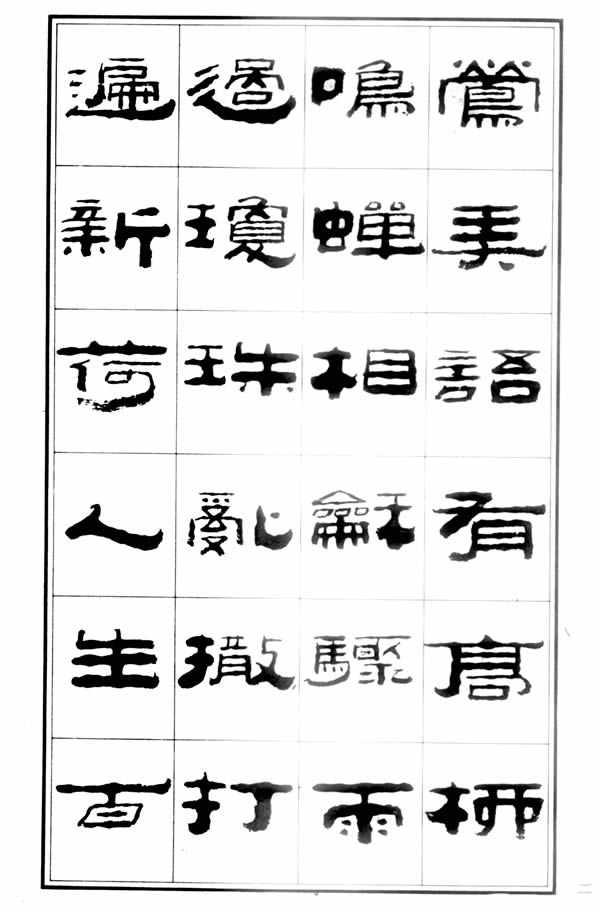 鶯弄語有高柳
鳴蟬相龢驟雨
過瓊珠亂撒打
遍新荷人生百
二